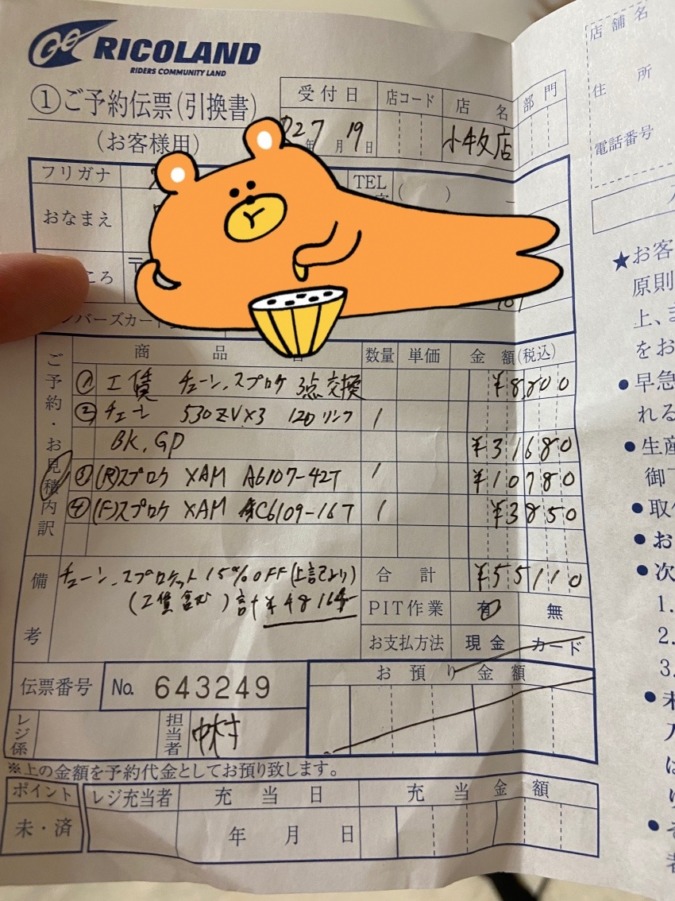 RICOLAND
RIDERS COMMUNITY LAND
①ご予約伝票(引換書)
(お客様用)
受付日 店コード 店名 部門
27年 月19日 小牧店
フリガナ TEL ( )
おなまえ
ころ 〒
ンバーズカード
ご予約・お見積内訳
商品 数量 単価 金額(税込)
① 工賃 チェーン、スプロケ 3点交換 ¥8800
② チェーン 530ZVX3 120リンク 1
BK,GP ¥31680
③ (R)スプロケ XAM A6107-42T 1 ¥10780
④ (F)スプロケ XAM C6109-16T 1 ¥3850
備考 チェーン、スプロケット 15%OFF(上記より) 合計 ¥55110
(工賃含む) 計¥48164 PIT作業 有 無
お支払方法 現金 カード
伝票番号 No. 643249 お預り金額
レジ係 担当者 中村
※上の金額を予約代金としてお預り致します。
ポイント レジ充当者 充当日 充当金額
未・済 年 月 日
店舗名
住所
電話番号
★お客
原則
上、
をお
●早急
れる
●生産
御了
●取
●お
●次
1.
2.
3.
●未